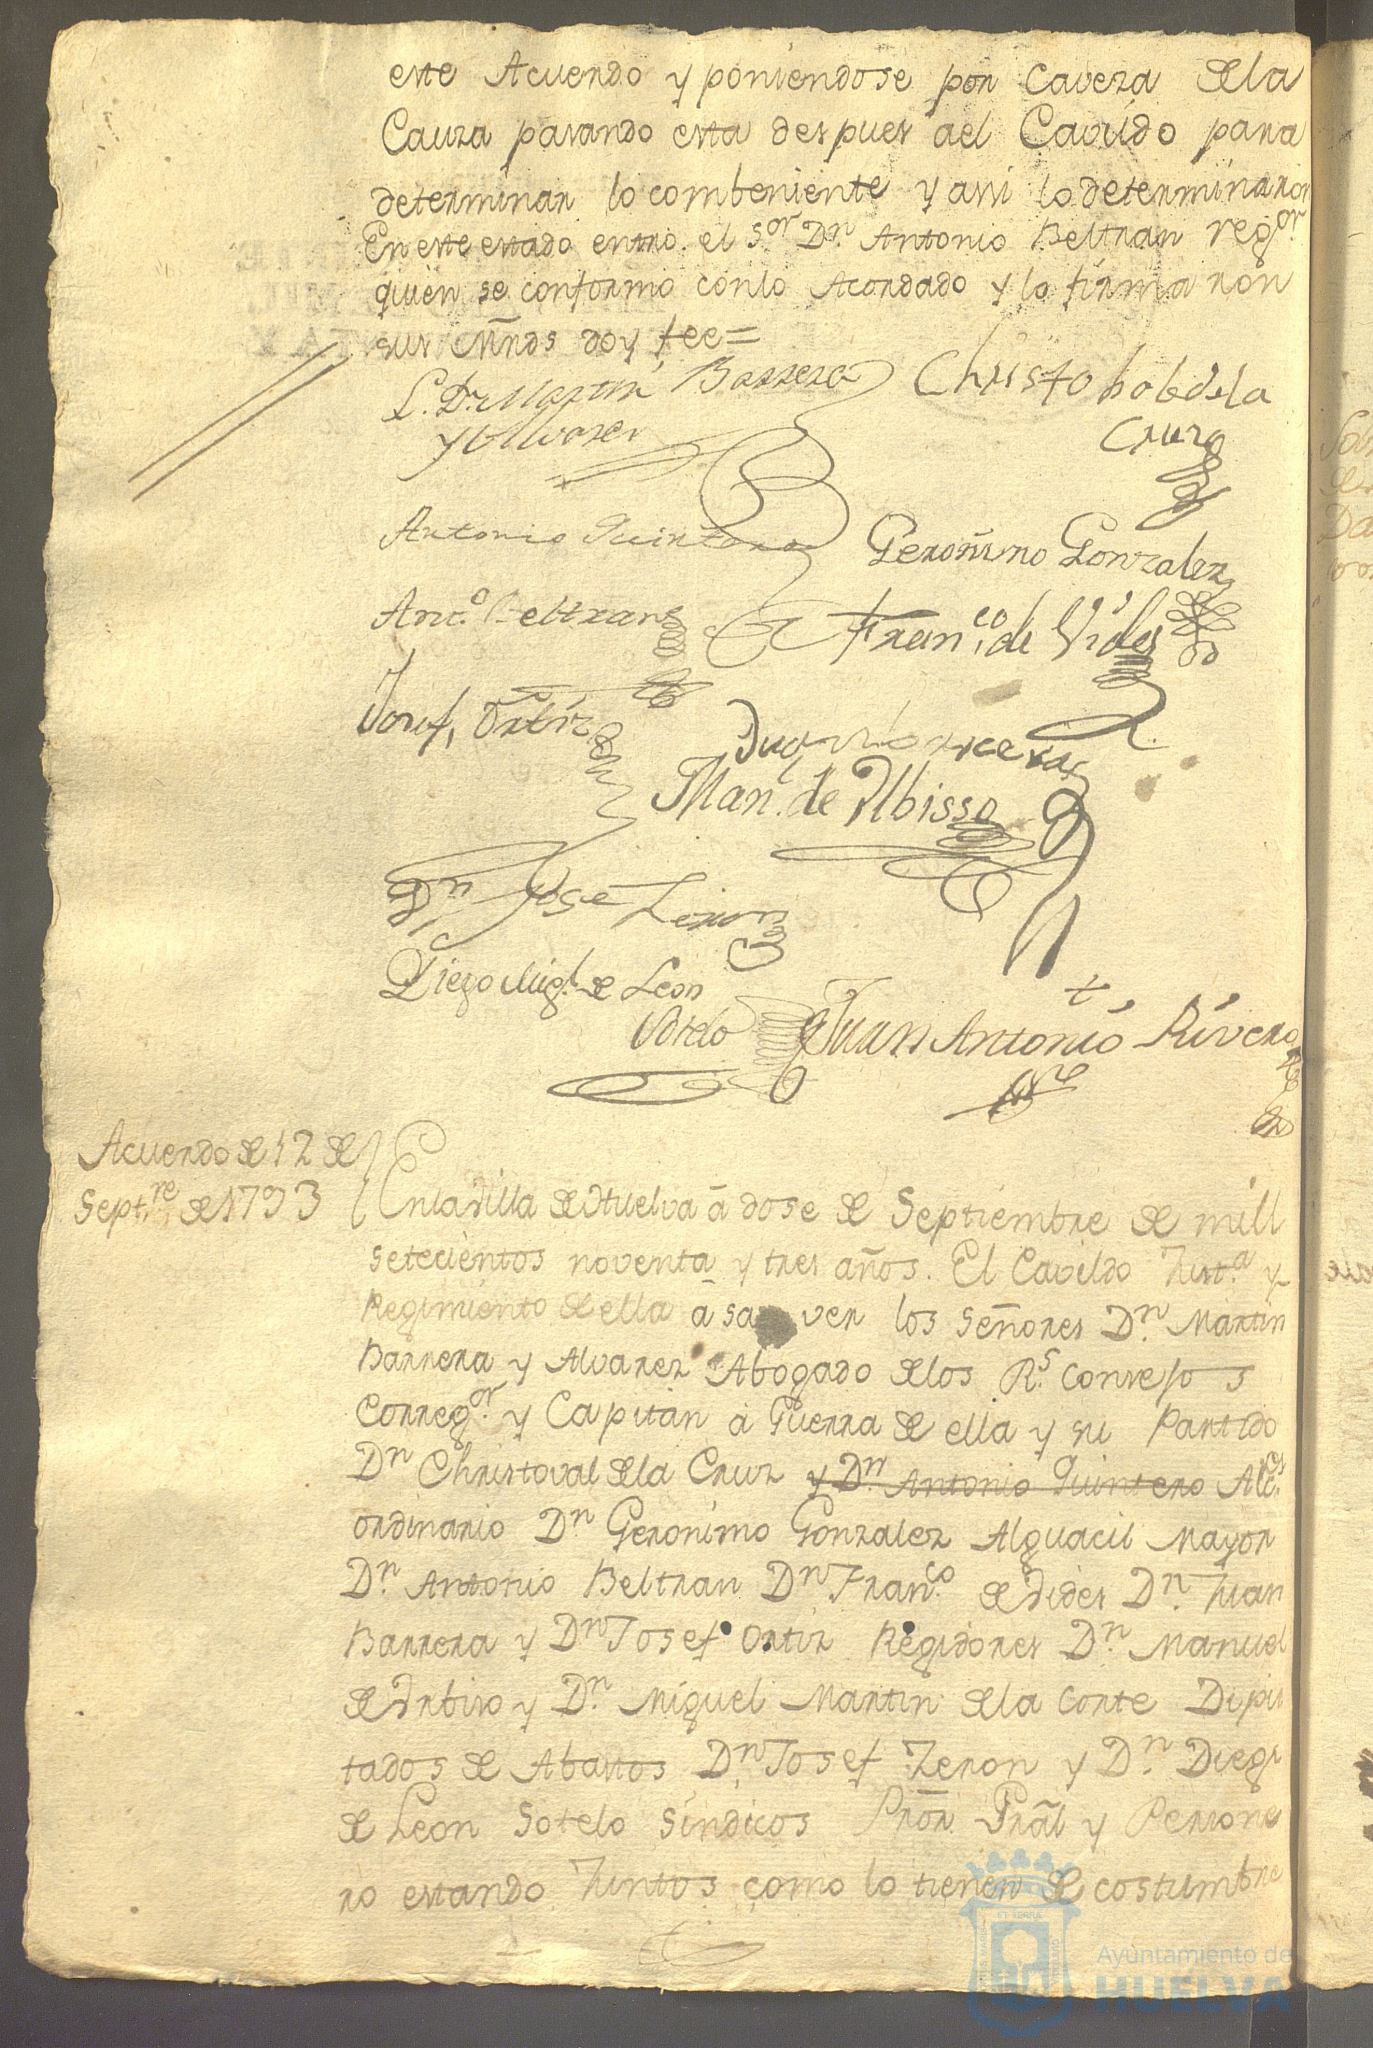 este Acuerdo y poniendose por Caveza de la
Causa pasando esta despues ael Cavildo para
determinar lo combeniente y assi lo determinaron
En este estado entro el Sor. Dn. Antonio Beltran regor.
quien se conformo con lo Acordado y lo firmaron
sus mrds doy fee=
L. Dn Martin Barrera
y Alvarez
Christobal de la
Cruz
Antonio Quintero
Geronimo Gonzalez
Anto. Beltran
Franco. de Vides
Josef Ortiz
Juan Barrera
Manl. de Urbisso
Dn Jose Zeron
Diego Migl. de Leon
Sotelo
Juan Antonio Rivero
Acuerdo de 12 de
Septre. de 1793
En la Villa de Huelva á dose de Septiembre de mill
setecientos noventa y tres años. El Cavildo Justa. y
Regimiento de ella á saver los Señores Dn. Martin
Barrera y Alvarez Abogado de los Rs. Consejos
Corregor. y Capitan á Guerra de ella y su Partido
Dn Christoval de la Cruz y Dn. Antonio Quintero Alces.
ordinario Dn Geronimo Gonzalez Alguacil Mayor
Dn. Antonio Beltran Dn Franco. de Vides Dn. Juan
Barrera y Dn Josef Ortiz Regidores Dn. Manuel
de Urbiso y Dn. Miguel Martin de la Corte Dipu
tados de Abastos Dn Josef Zeron y Dn Diego
de Leon Sotelo Sindicos Pror. Gral y Persone
ro estando Juntos como lo tienen de costumbre
Ayuntamiento de
HUELVA